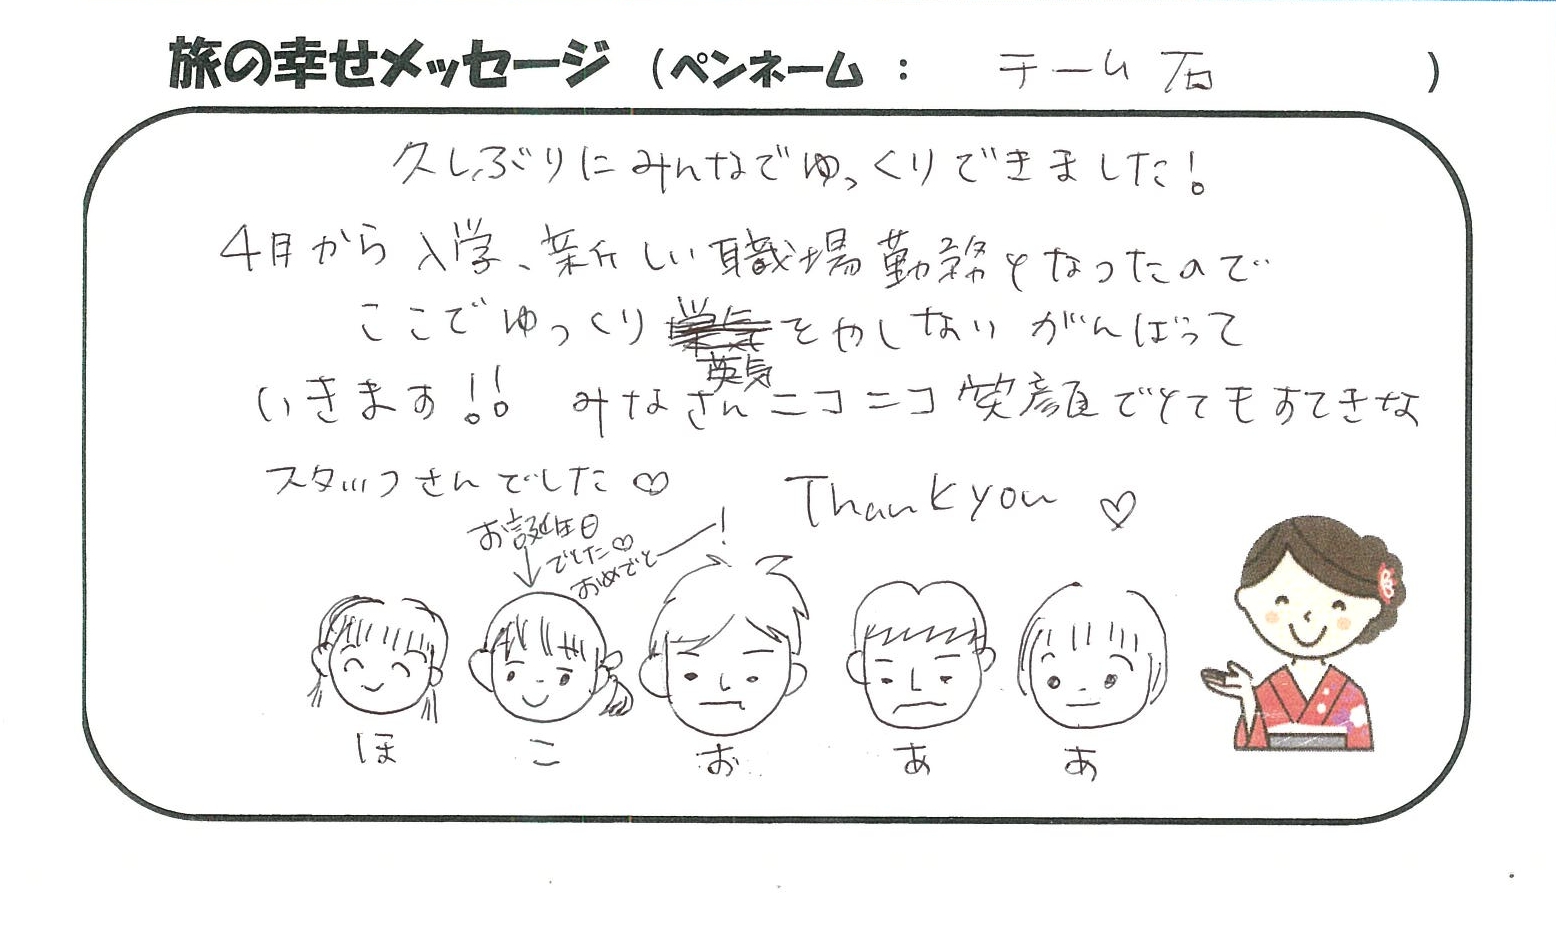 旅の幸せメッセージ (ペンネーム : チーム石 )
久しぶりにみんなでゆっくりできました!
4月から入学、新しい職場勤務となったので
ここでゆっくり英気をやしないがんばって
いきます!! みなさんニコニコ笑顔でとてもすてきな
スタッフさんでした♡ Thank you ♡
お誕生日
でした♡
おめでとー!
ほ こ お あ あ